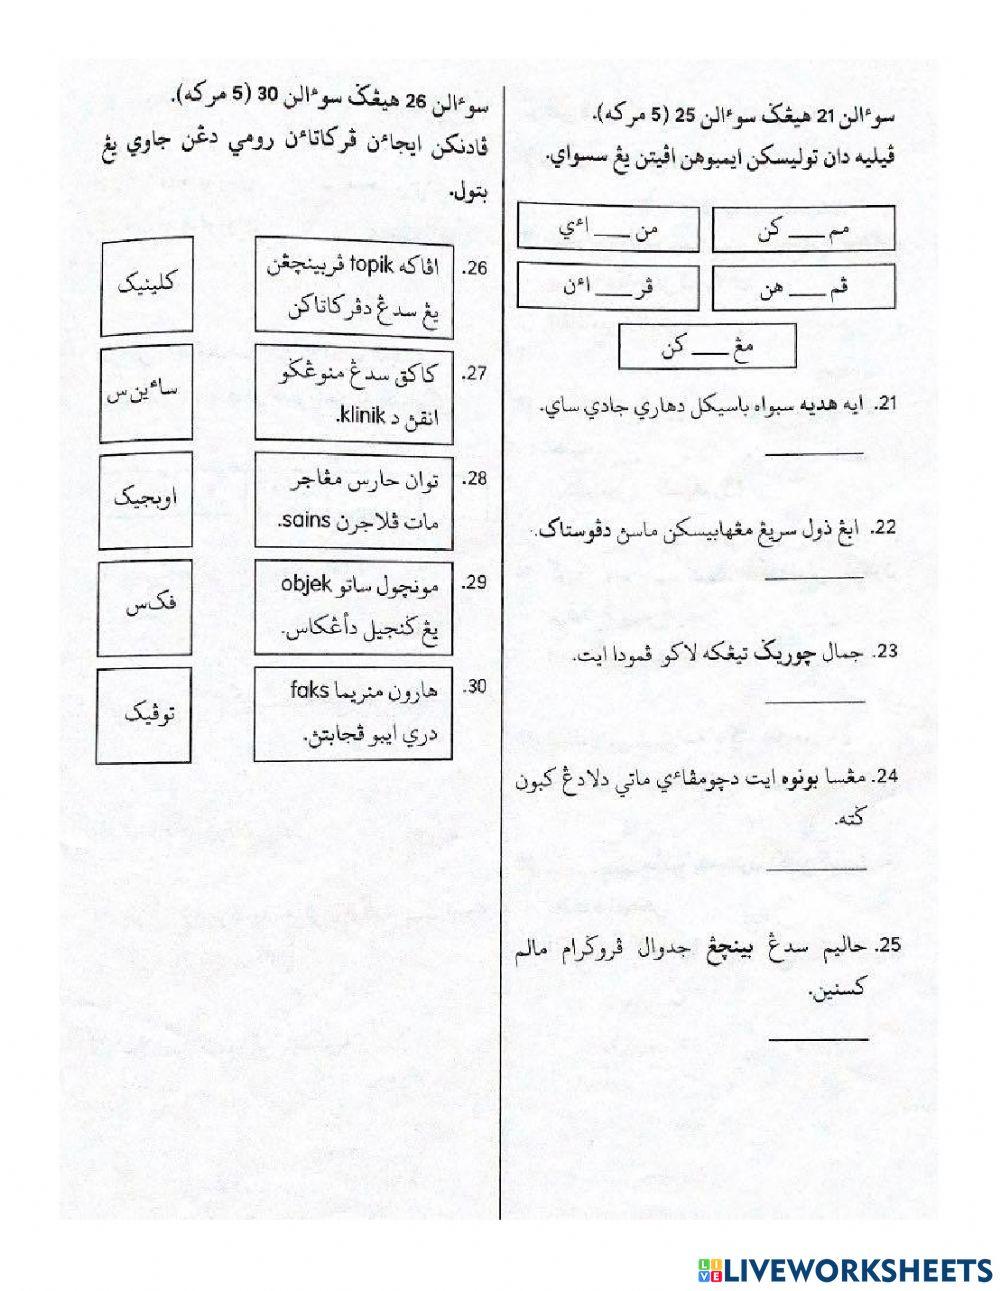 سوءالن 21 هيڠݢ سوءالن 25 (5 مركه).
ڤيليه دان توليسكن ايمبوهن اڤيتن يڠ سسواي.
مم ____ كن
من ____ اءي
ڤم ____ هن
ڤر ____ اءن
مڠ ____ كن
21. ايه هديه سبواه باسيكل دهاري جادي ساي.
22. ابڠ ذول سريڠ مڠهابيسكن ماسن دڤوستاک.
23. جمال چوريݢ تيڠكه لاكو ڤمودا ايت.
24. مڠسا بونوه ايت دچومڤاءي ماتي دلادڠ كبون
ݢته.
25. حاليم سدڠ بينچڠ جدوال ڤروݢرام مالم
كسنين.
سوءالن 26 هيڠݢ سوءالن 30 (5 مركه).
ڤادنكن ايجاءن ڤركاتاءن رومي دڠن جاوي يڠ
بتول.
26. اڤاكه topik ڤربينچڠن
يڠ سدڠ دڤركاتاكن
كلينيک
27. كاكق سدڠ منوڠݢو
انقڽ د klinik.
ساءين س
28. توان حارس مڠاجر
مات ڤلاجرن sains.
اوبجيک
29. مونچول ساتو objek
يڠ ݢنجيل دأڠكاس.
فک س
30. هارون منريما faks
دري ايبو ڤجابتڽ.
توڤيک
LIVEWORKSHEETS